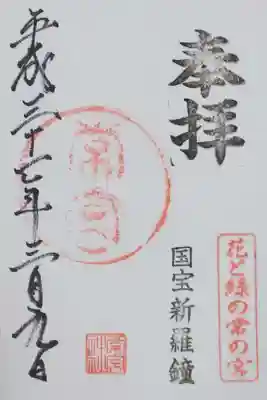 奉拝
花と緑の常の宮
国宝新羅鐘
常宮
平成二十七年三月九日